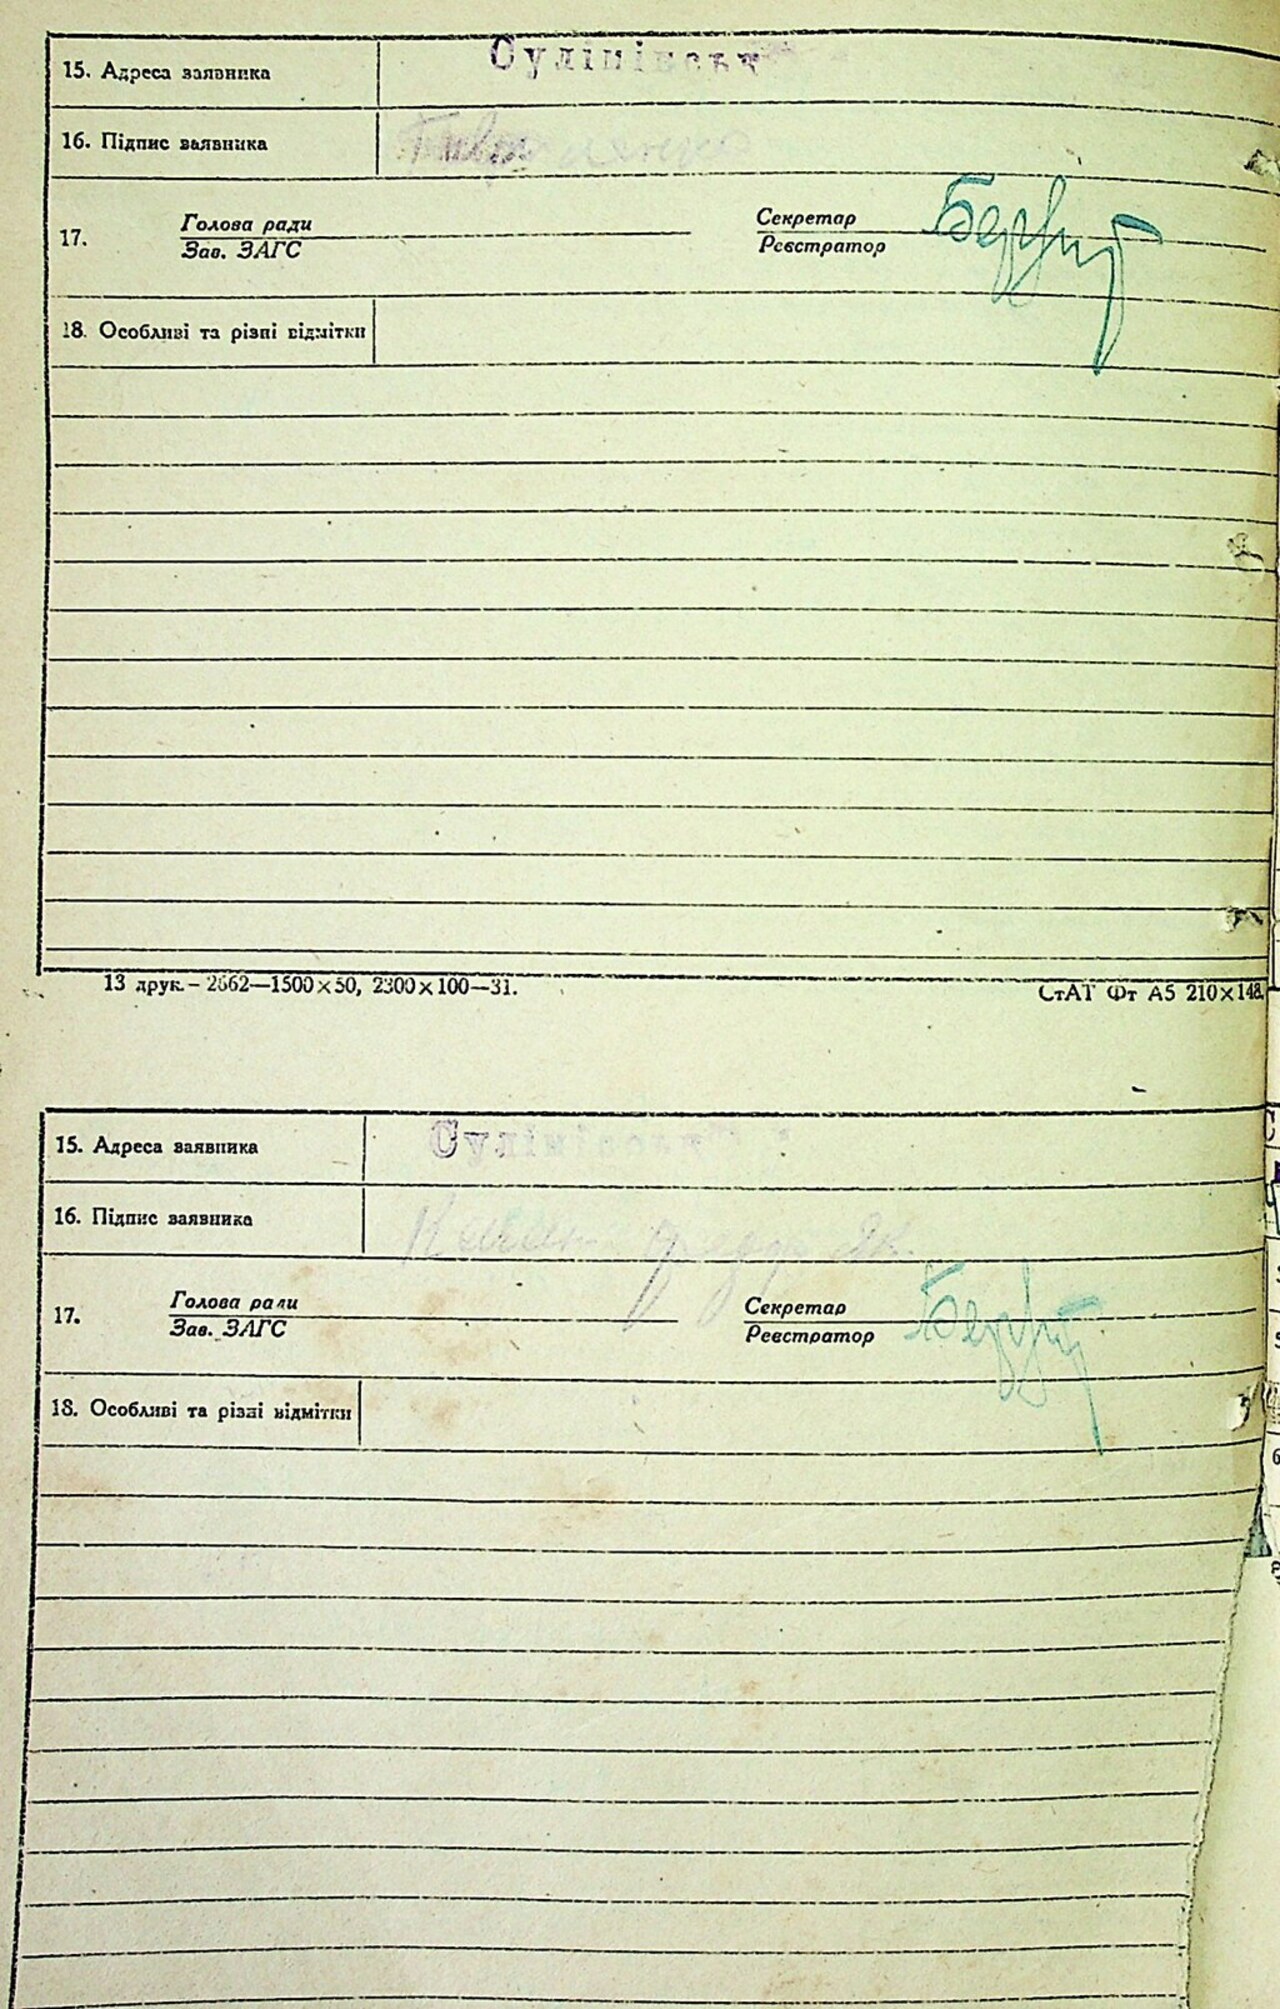 15. Адреса заявника Сулінівськ
16. Підпис заявника
17. Голова ради Секретар
Зав. ЗАГС Реєстратор
18. Особливі та різні відмітки
13 друк.- 2662—1500×50, 2300×100—31. СтАТ Фт А5 210×148.
15. Адреса заявника Сулінівськ
16. Підпис заявника
17. Голова ради Секретар
Зав. ЗАГС Реєстратор
18. Особливі та різні відмітки